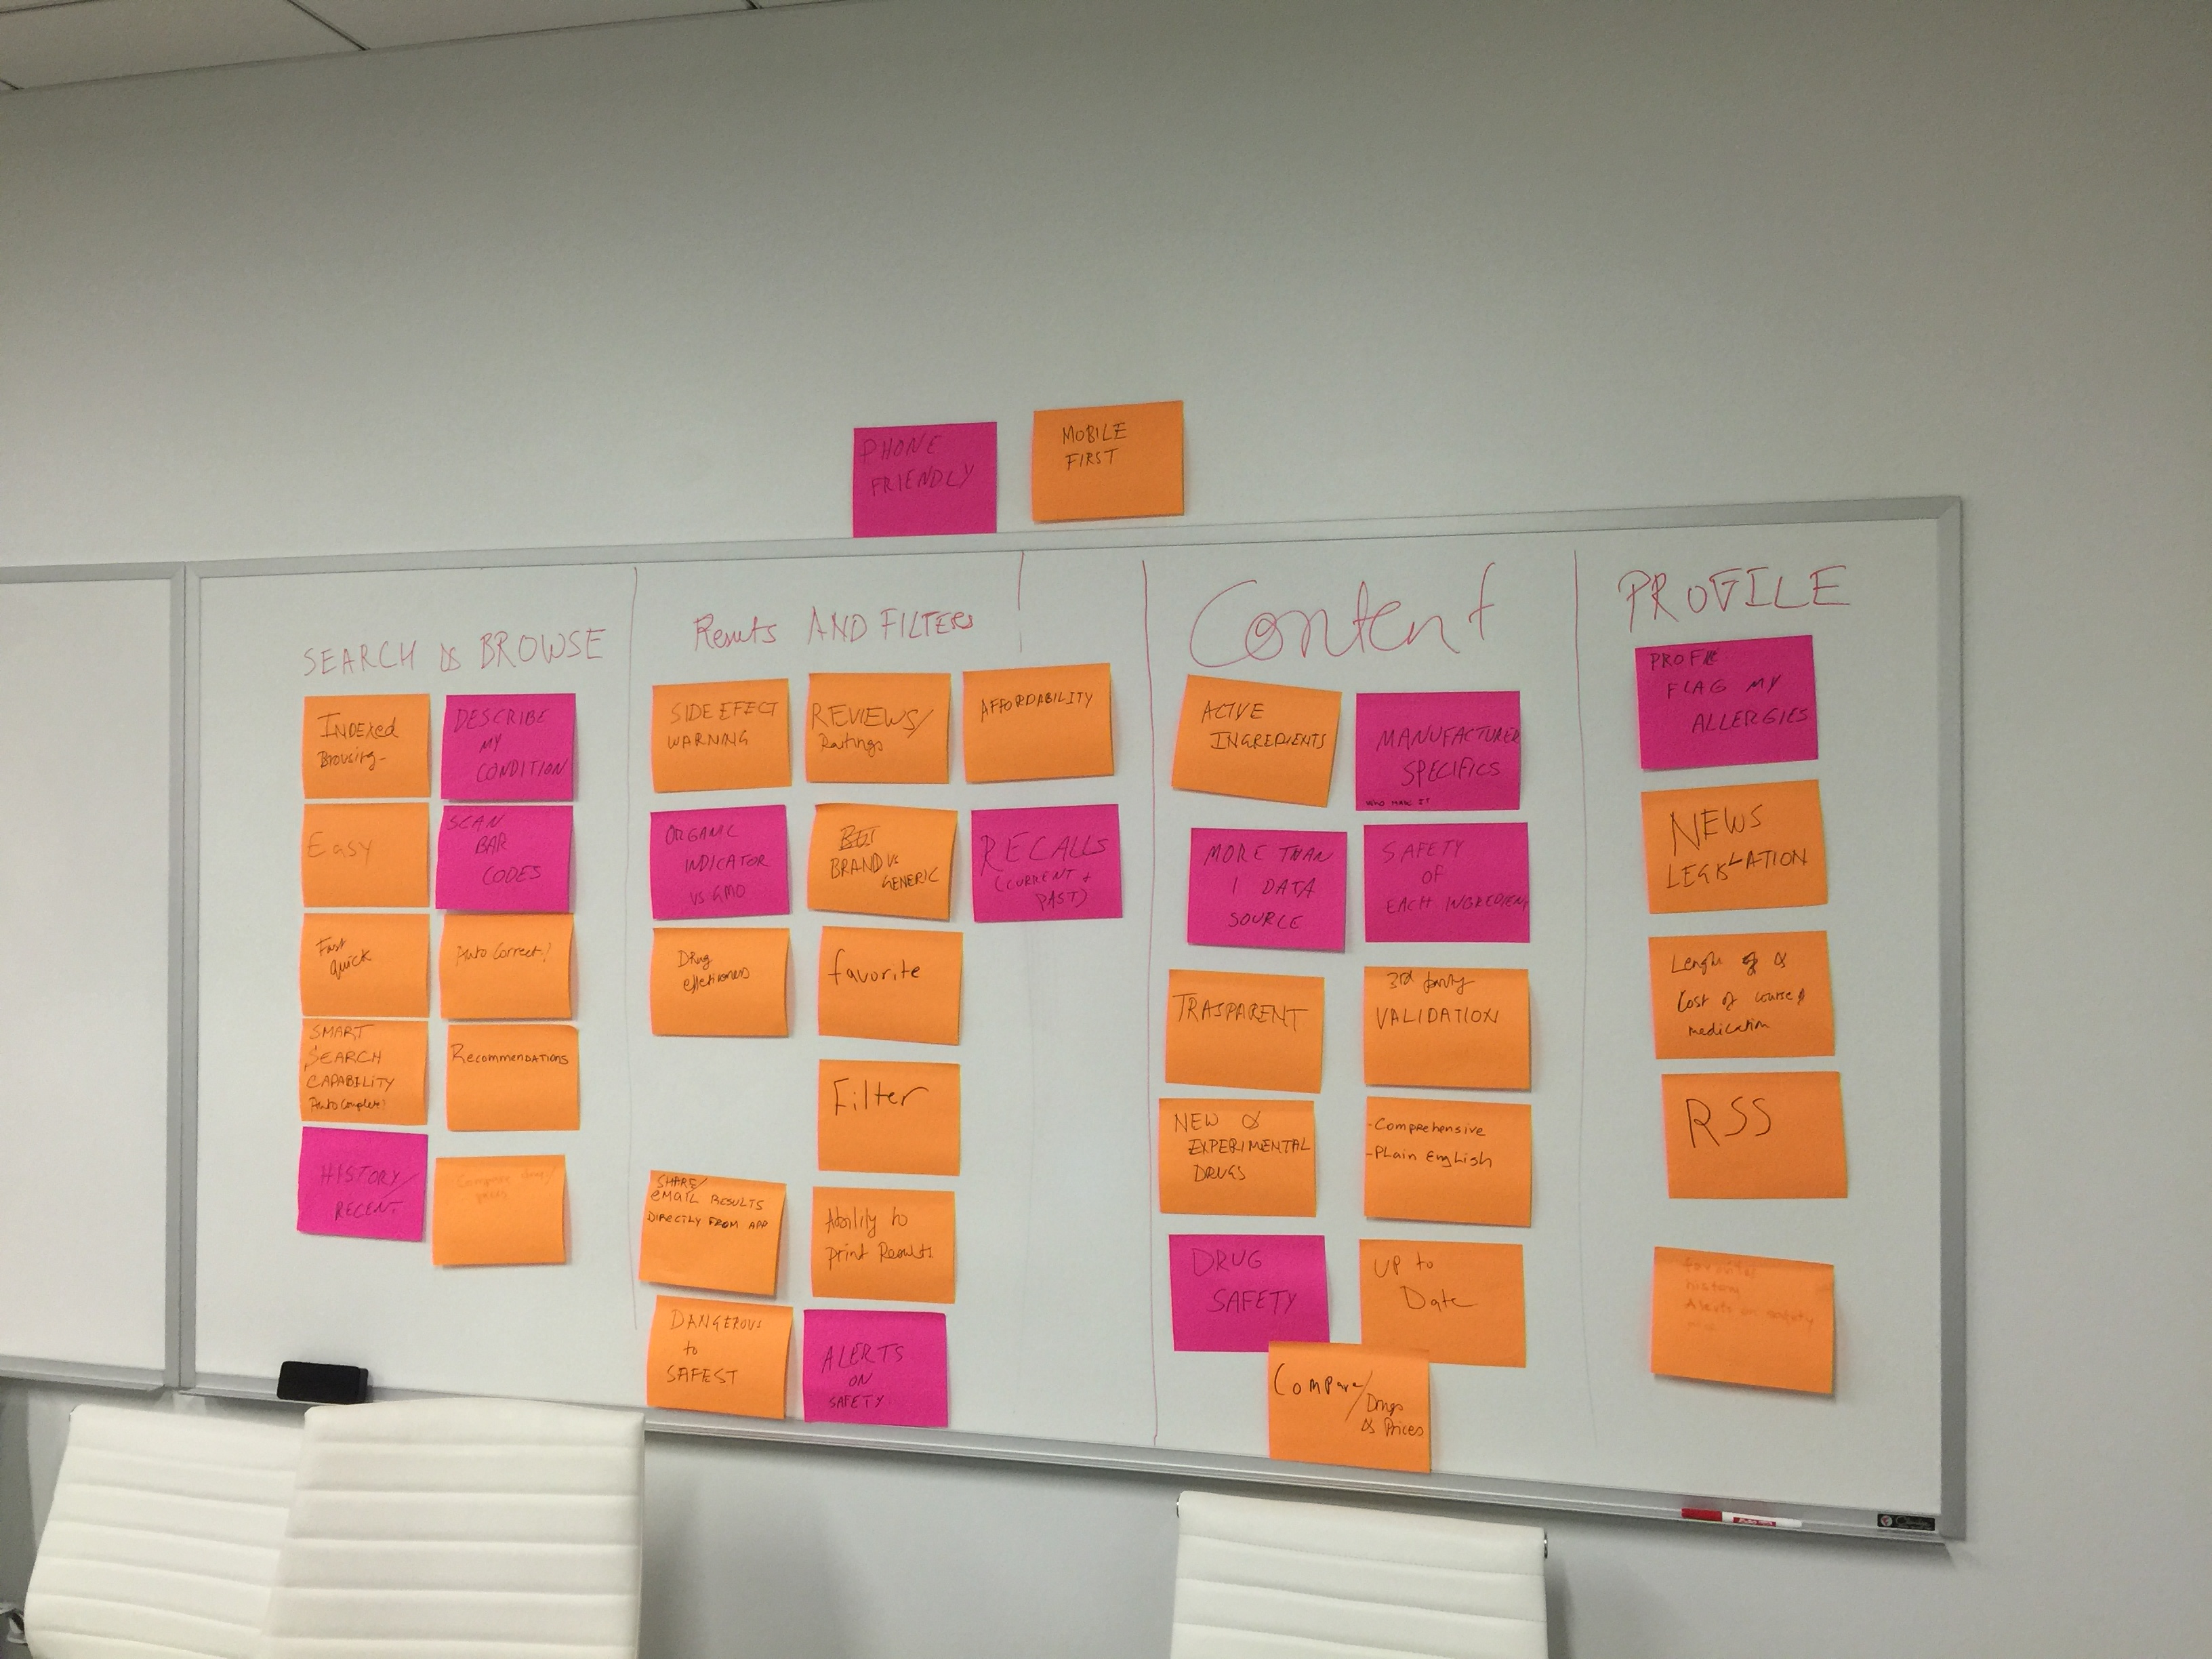 PHONE
FRIENDLY
MOBILE
FIRST
SEARCH & BROWSE
INDEXED
Browsing-
DESCRIBE
MY
CONDITION
Easy
SCAN
BAR
CODES
Fast
quick
Auto Correct?
SMART
SEARCH
CAPABILITY
Auto Complete?
RECOMMENDATIONS
HISTORY/
RECENT
Compare drug/
prices
Results AND FILTERS
SIDE EFECT
WARNING
REVIEWS/
Raitings
AFFORDABILITY
ORGANIC
INDICATOR
VS GMO
BRAND VS
GENERIC
RECALLS
(CURRENT +
PAST)
Drug
effectiveness
favorite
Filter
SHARE/
EMAIL RESULTS
DIRECTLY FROM APP
Ability to
print Results
DANGEROUS
to
SAFEST
ALERTS
ON
SAFETY
Content
ACTIVE
INGREDIENTS
MANUFACTURER
SPECIFICS
who make it?
MORE THAN
1 DATA
SOURCE
SAFETY
OF
EACH INGREDIENT
TRASPARENT
3rd party
VALIDATION
NEW &
EXPERIMENTAL
DRUGS
-Comprehensive
-Plain English
DRUG
SAFETY
UP to
Date
Compare/
Drugs
& Prices
PROFILE
PROFILE
FLAG MY
ALLERGIES
NEWS
LEGISLATION
Length of &
Cost of course
medication
RSS
favorites
history
Alerts on safety